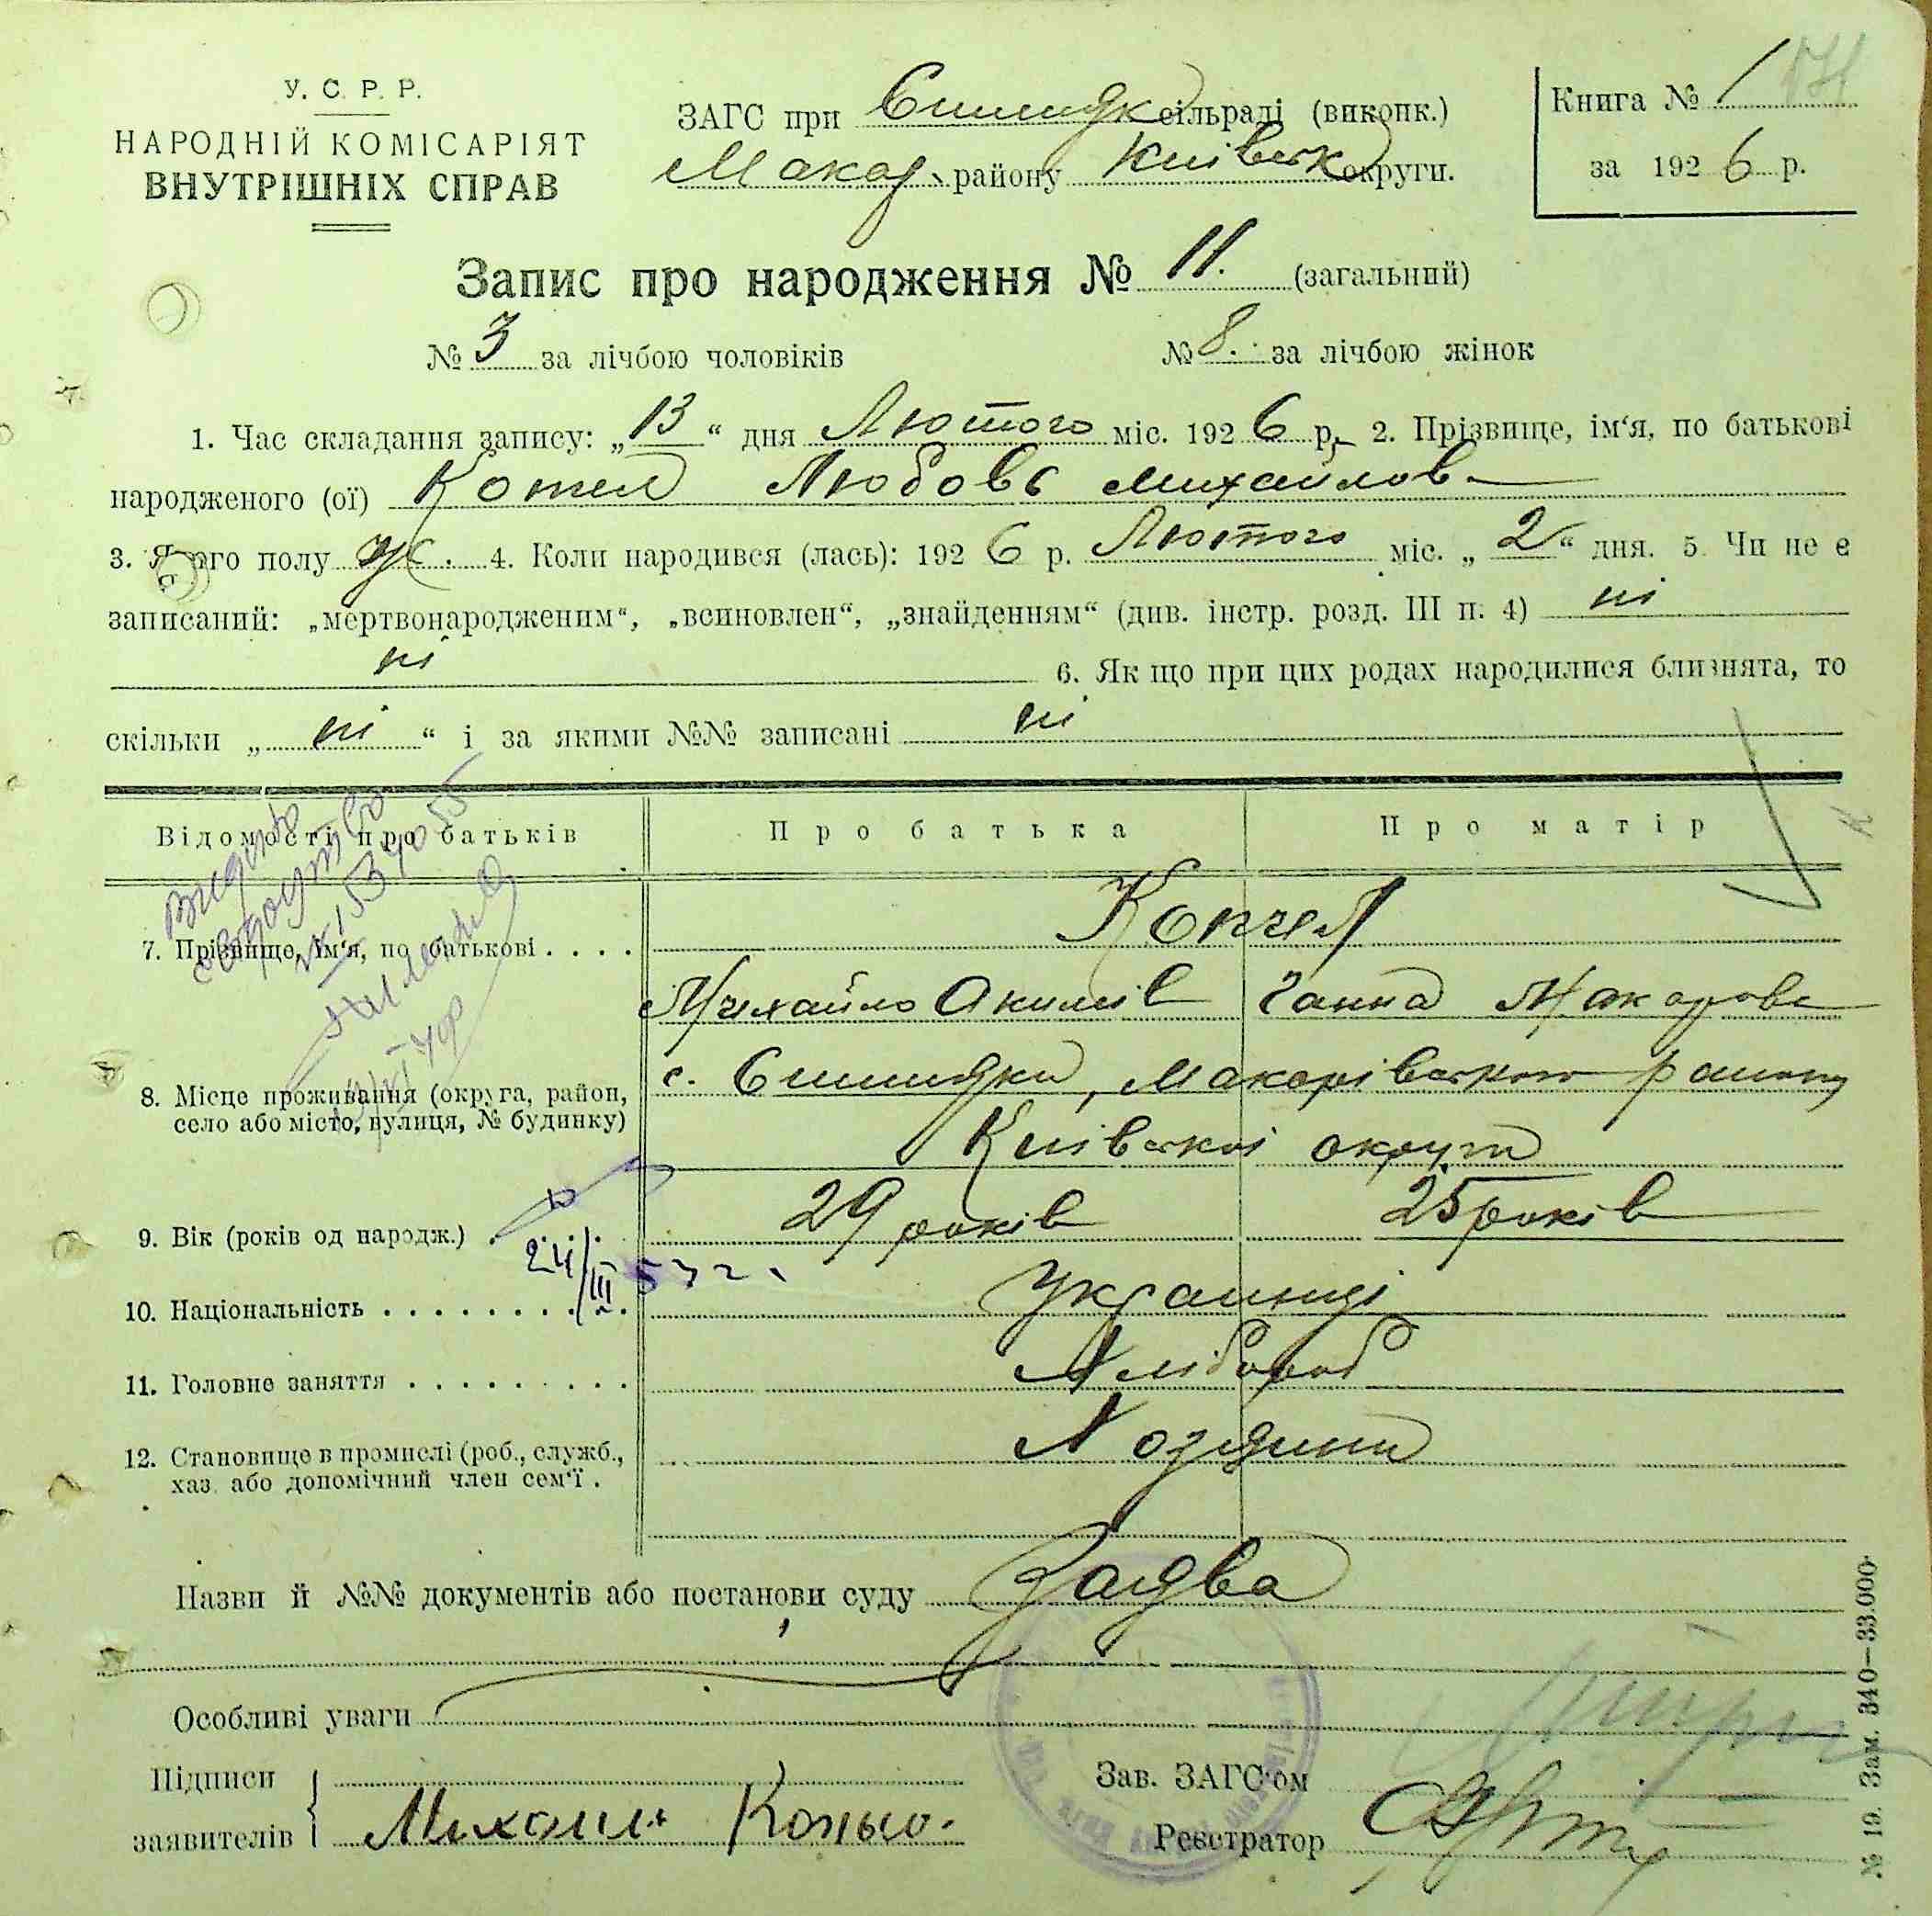 У. С. Р. Р.
НАРОДНІЙ КОМІСАРІЯТ
ВНУТРІШНІХ СПРАВ
ЗАГС при сільраді (виконк.)
Макар. району Київськ округи.
Книга № 1
за 1926 р.
Запис про народження № 11. (загальний)
№ 3 за лічбою чоловіків № 8. за лічбою жінок
1. Час складання запису: „13“ дня Лютого міс. 1926 р. 2. Прізвище, ім‘я, по батькові
народженого (ої) Любовь Михайлов
3. Якого полу ж. 4. Коли народився (лась): 1926 р. Лютого міс. „2“ дня. 5 Чи не є
записаний: „мертвонародженим“, „всиновлен“, „знайденням“ (див. інстр. розд. III п. 4) ні
ні 6. Як що при цих родах народилися близнята, то
скільки „ні“ і за якими №№ записані ні
Відомості про батьків Про батька Про матір
7. Прізвище, ім‘я, по батькові . . . .
Михайло Акимів Ганна Макарова
8. Місце проживання (округа, район,
село або місто, вулиця, № будинку)
с. Макарівського району
Київської округи
9. Вік (років од народж.) 29 років 25 років
24/III 53 г.
10. Національність Українці
11. Головне заняття Хлібороб
12. Становище в промислі (роб., служб.,
хаз. або допомічний член сем‘ї .
Назви й №№ документів або постанови суду Заява
Особливі уваги
Підписи
заявителів Михаил
Зав. ЗАГС‘ом
Реєстратор
№ 19. Зам. 340—33.000